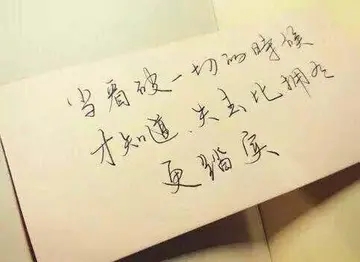 当看破一切的時候
才知道.失去比拥有
更踏实